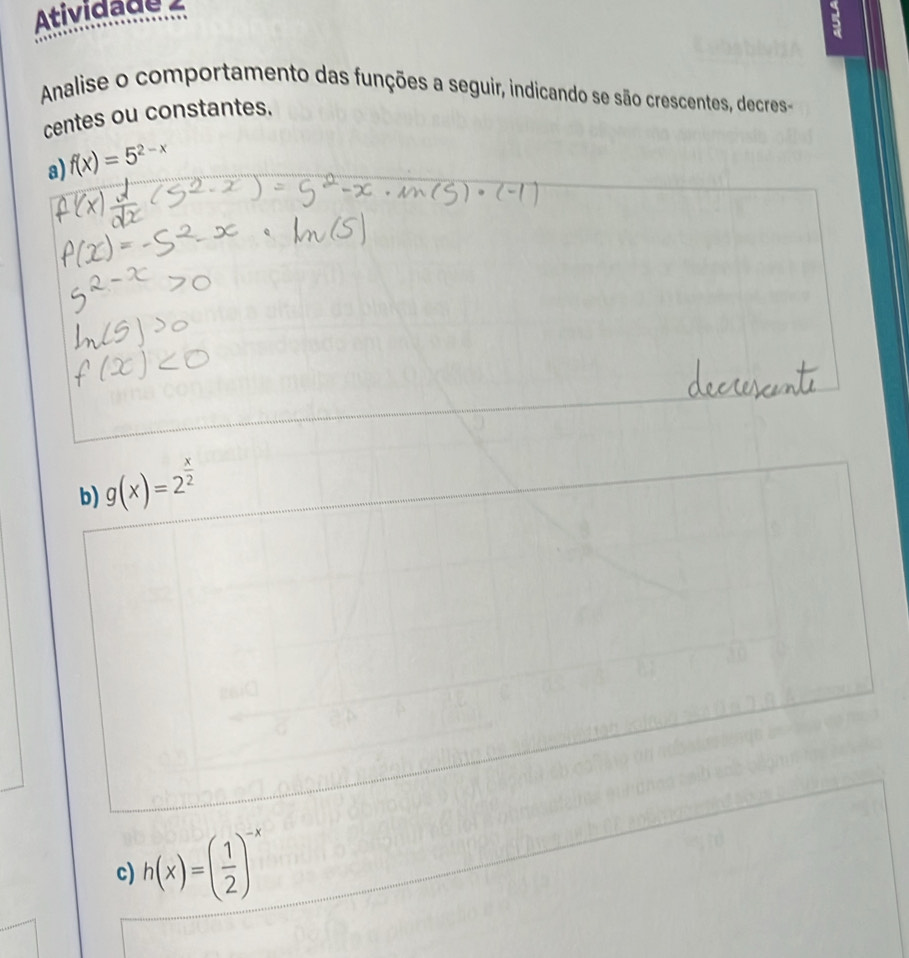 Atividade 2
AULA
Analise o comportamento das funções a seguir, indicando se são crescentes, decres-
centes ou constantes.
a) f(x) = 5^{2-x}
f'(x) d/dx (5^{2-x}) = 5^{2-x} · ln(5) · (-1)
f(x) = -5^{2-x} · ln(5)
5^{2-x} >0
ln(5) >0
f(x) <0
decrescente
b) g(x) = 2^{x/2}
c) h(x) = (1/2)^{-x}